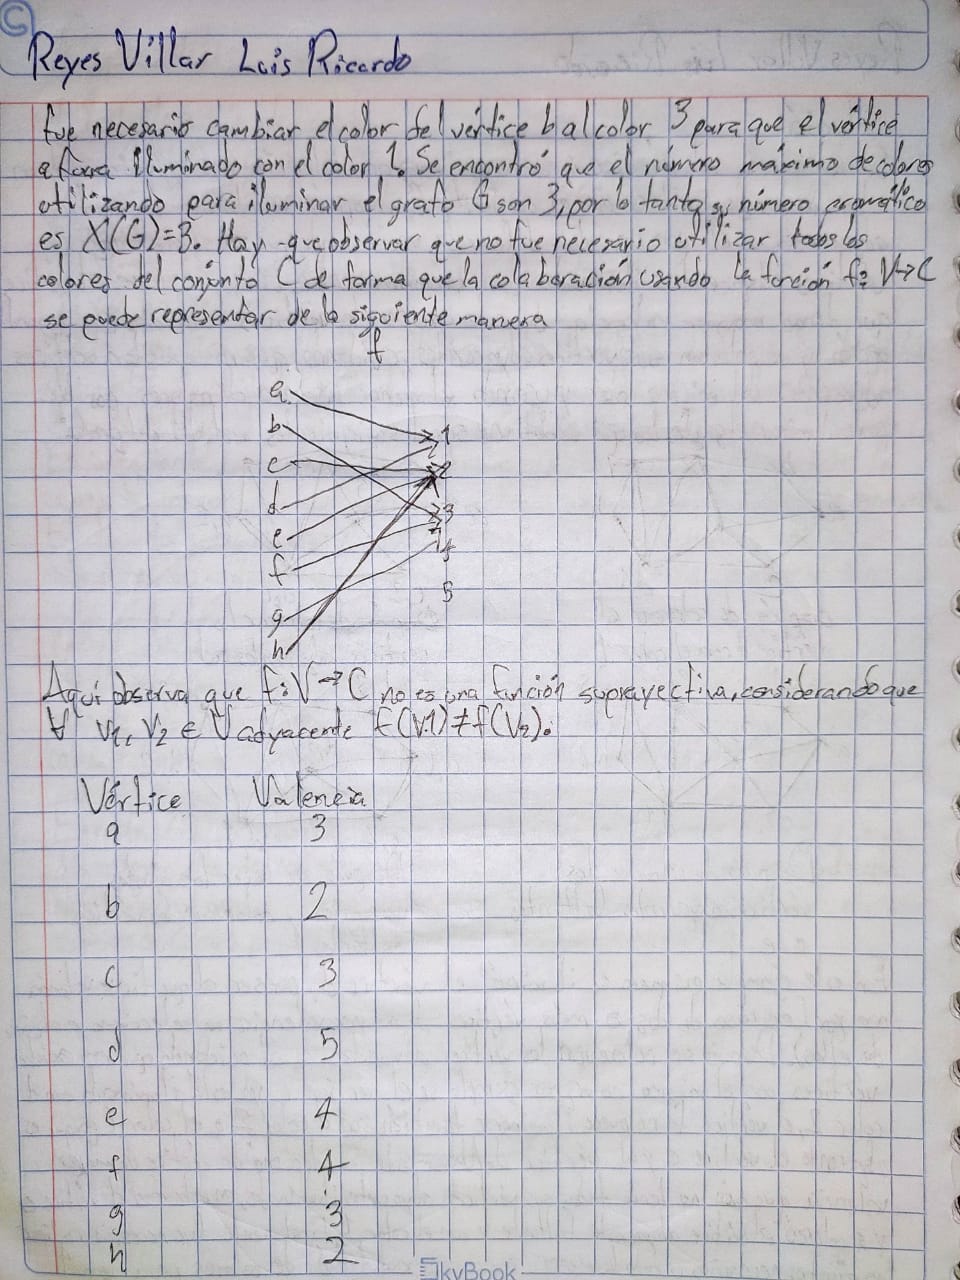 Reyes Villar Luis Ricardo
fue necesario cambiar el color del vértice b al color 3 para que el vértice
a fuera iluminado con el color 1. Se encontró que el número máximo de colores
utilizando para iluminar el grafo G son 3, por lo tanto su número cromático
es X(G)=3. Hay que observar que no fue necesario utilizar todos los
colores del conjunto C de forma que la colaboración usando la función f: V→C
se puede representar de la siguiente manera
f
a
b 1
c 2
d
e 3
f 4
5
g
h
Aquí observa que f:V→C no es una función suprayectiva, considerando que
∀ V1, V2 ∈ V adyacente f(V1)≠f(V2).
Vértice Valencia
a 3
b 2
c 3
d 5
e 4
f 4
g 3
h 2
SkyBook